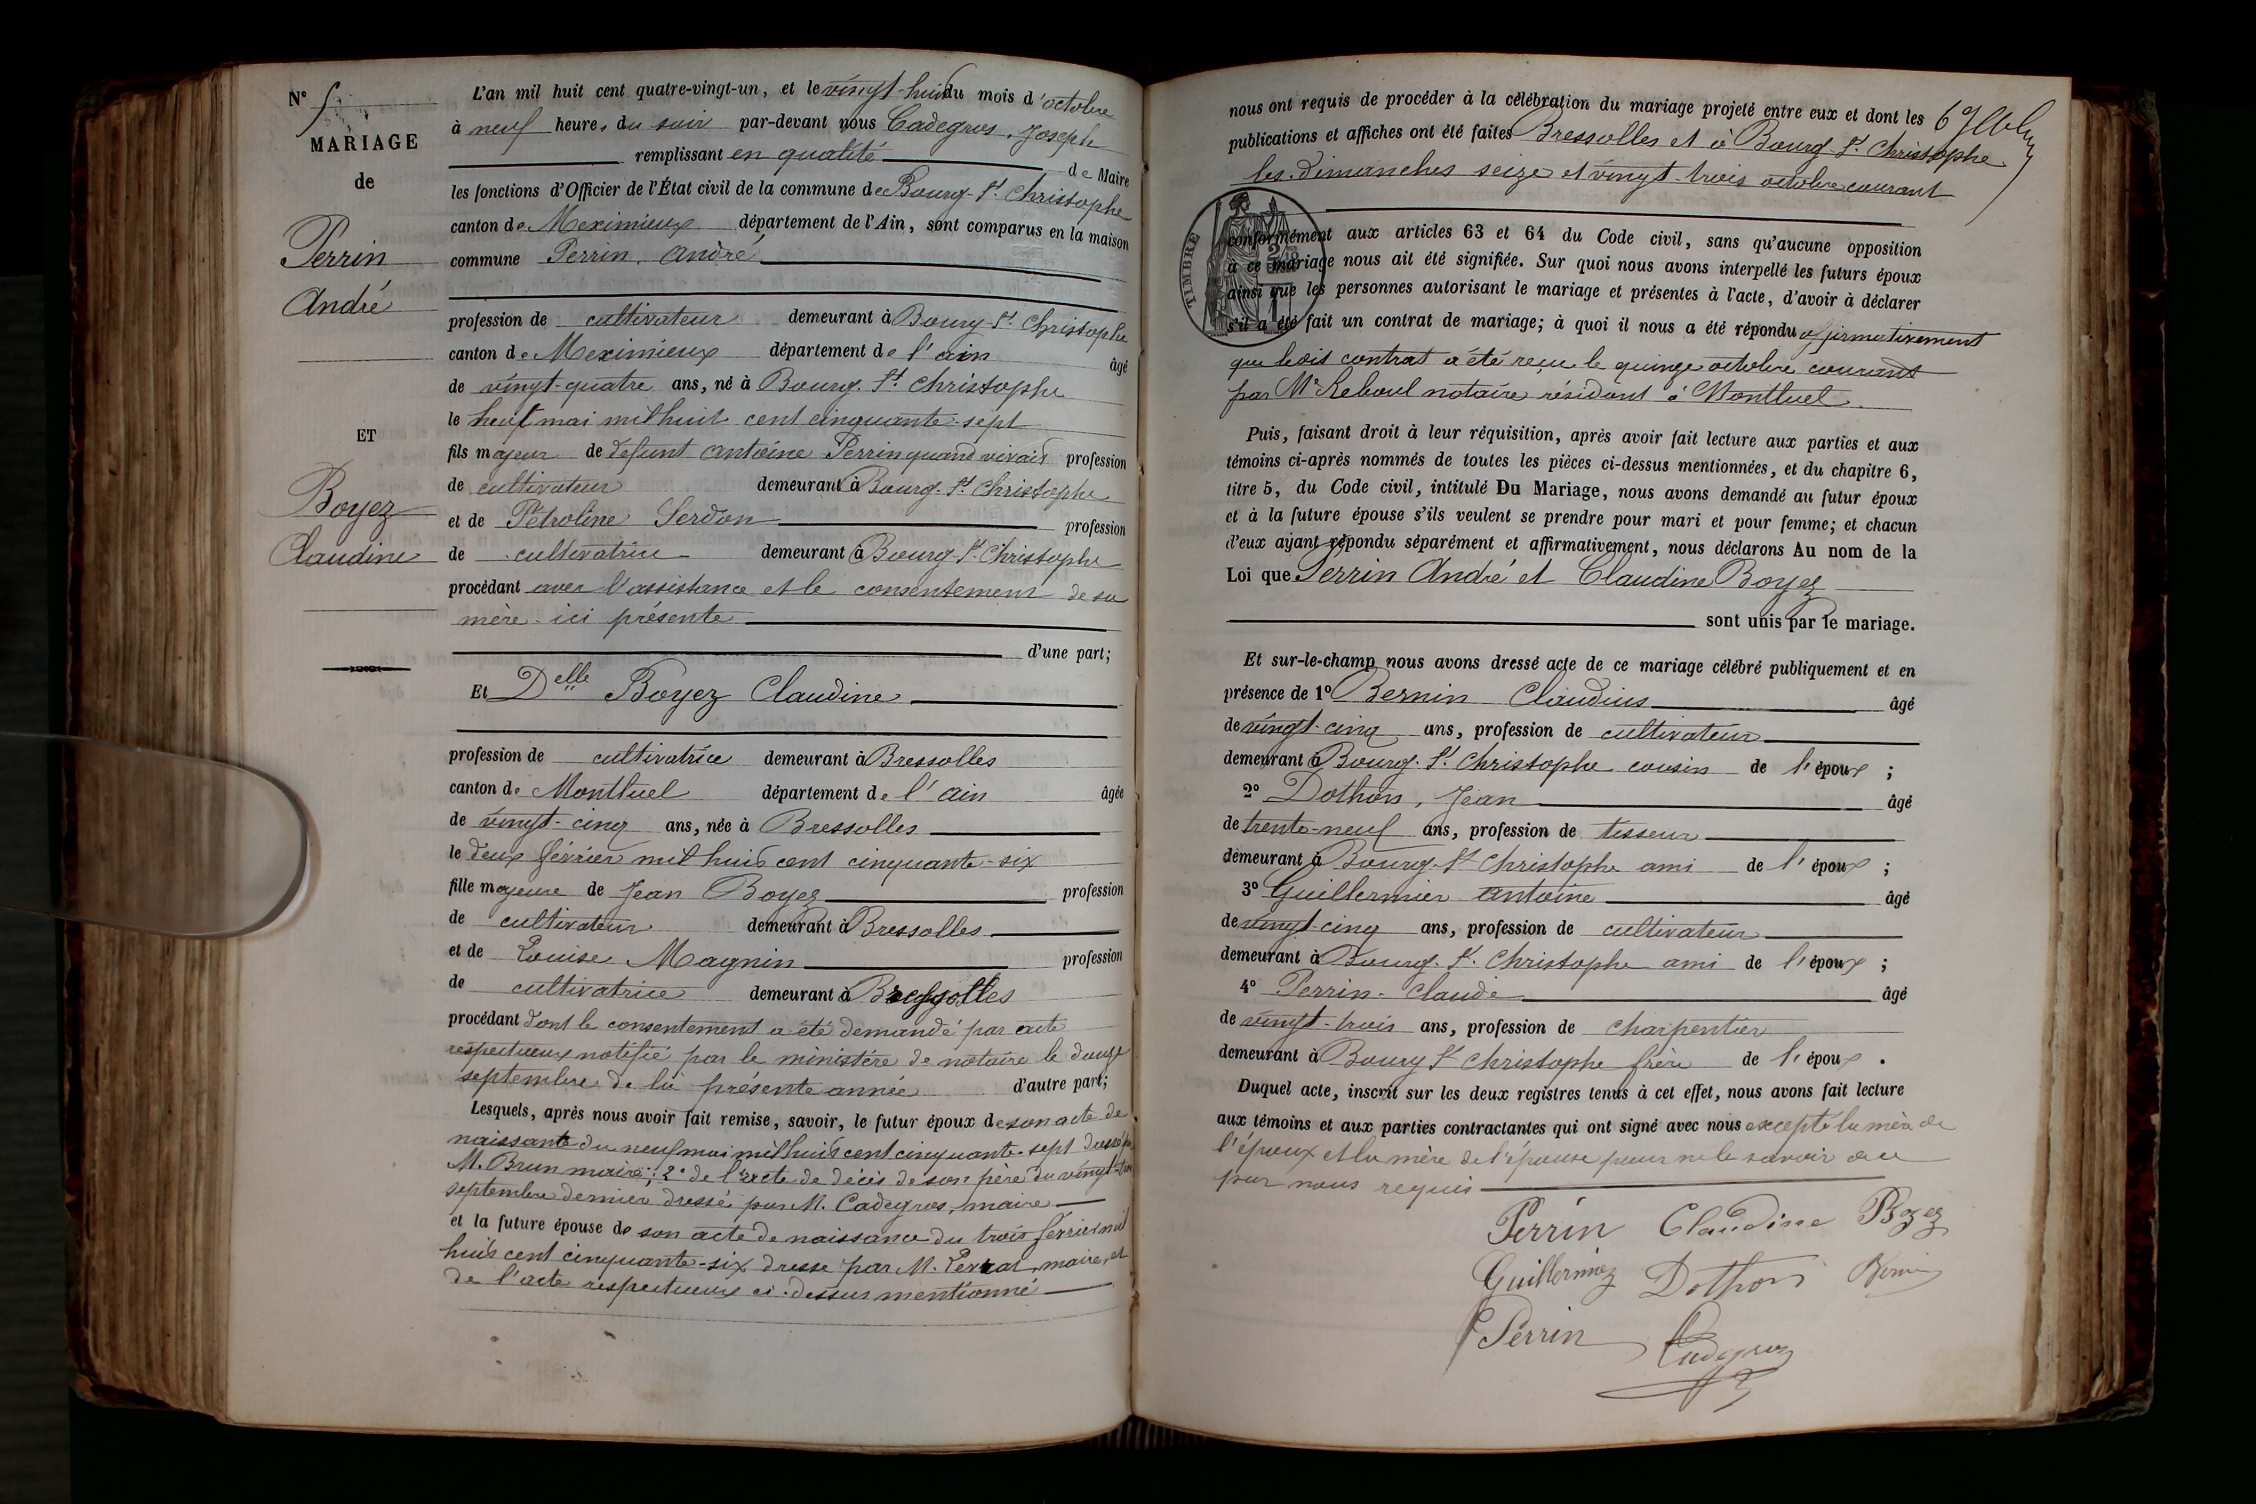 N° 5
MARIAGE
de
Perrin
André
ET
Boyez
Claudine
L'an mil huit cent quatre-vingt-un, et le vingt-huit du mois d'octobre
à neuf heures du soir par-devant nous Cadegros, Joseph
remplissant en qualité de Maire
les fonctions d'Officier de l'État civil de la commune de Bourg-St Christophe
canton de Meximieux département de l'Ain, sont comparus en la maison
commune Perrin, André
profession de cultivateur demeurant à Bourg-St Christophe
canton de Meximieux département de l'ain âgé
de vingt-quatre ans, né à Bourg-St Christophe
le neuf mai mil huit cent cinquante-sept
fils majeur de défunt Antoine Perrin quand vivait profession
de cultivateur demeurant à Bourg-St Christophe
et de Pétroline Serdon profession
de cultivatrice demeurant à Bourg-St Christophe
procédant avec l'assistance et le consentement de sa
mère ici présente
d'une part;
Et Delle Boyez Claudine
profession de cultivatrice demeurant à Bressolles
canton de Montluel département de l'ain âgée
de vingt-cinq ans, née à Bressolles
le deux février mil huit cent cinquante-six
fille majeure de Jean Boyez profession
de cultivateur demeurant à Bressolles
et de Louise Magnin profession
de cultivatrice demeurant à Bressolles
procédant dont le consentement a été demandé par acte
respectueux notifié par le ministère de notaire le douze
septembre de la présente année d'autre part;
Lesquels, après nous avoir fait remise, savoir, le futur époux de son acte de
naissante du neuf mai mil huit cent cinquante-sept dressé par
M. Brun maire; 2° de l'acte de décès de son père du vingt-
septembre dernier dressé par M. Cadegros, maire
et la future épouse de son acte de naissance du trois février mil
huit cent cinquante-six dresse par M. Perrat, maire, et
de l'acte respectueux ci-dessus mentionné
nous ont requis de procéder à la célébration du mariage projeté entre eux et dont les
publications et affiches ont été faites Bressolles et à Bourg-St Christophe
les dimanches seize et vingt-trois octobre courant
TIMBRE
conformément aux articles 63 et 64 du Code civil, sans qu'aucune opposition
à ce mariage nous ait été signifiée. Sur quoi nous avons interpellé les futurs époux
ainsi que les personnes autorisant le mariage et présentes à l'acte, d'avoir à déclarer
s'il a été fait un contrat de mariage; à quoi il nous a été répondu affirmativement
que ledit contrat a été reçu le quinze octobre courant
par Me Reboul notaire résidant à Montluel
Puis, faisant droit à leur réquisition, après avoir fait lecture aux parties et aux
témoins ci-après nommés de toutes les pièces ci-dessus mentionnées, et du chapitre 6,
titre 5, du Code civil, intitulé Du Mariage, nous avons demandé au futur époux
et à la future épouse s'ils veulent se prendre pour mari et pour femme; et chacun
d'eux ayant répondu séparément et affirmativement, nous déclarons Au nom de la
Loi que Perrin André et Claudine Boyez
sont unis par le mariage.
Et sur-le-champ nous avons dressé acte de ce mariage célébré publiquement et en
présence de 1° Bernin Claudius âgé
de vingt-cinq ans, profession de cultivateur
demeurant à Bourg-St Christophe cousin de l'époux ;
2° Dothon, Jean âgé
de trente-neuf ans, profession de tisseur
demeurant à Bourg-St Christophe ami de l'époux ;
3° Guillermier Antoine âgé
de vingt-cinq ans, profession de cultivateur
demeurant à Bourg-St Christophe ami de l'époux ;
4° Perrin Claude âgé
de vingt-trois ans, profession de charpentier
demeurant à Bourg St Christophe frère de l'époux .
Duquel acte, inscrit sur les deux registres tenus à cet effet, nous avons fait lecture
aux témoins et aux parties contractantes qui ont signé avec nous excepté la mère de
l'époux et la mère de l'épouse pour ne le savoir de ce
par nous requis
Perrin Claudine Boyez
Guillermiez Dothon Bernin
Perrin Cadegros